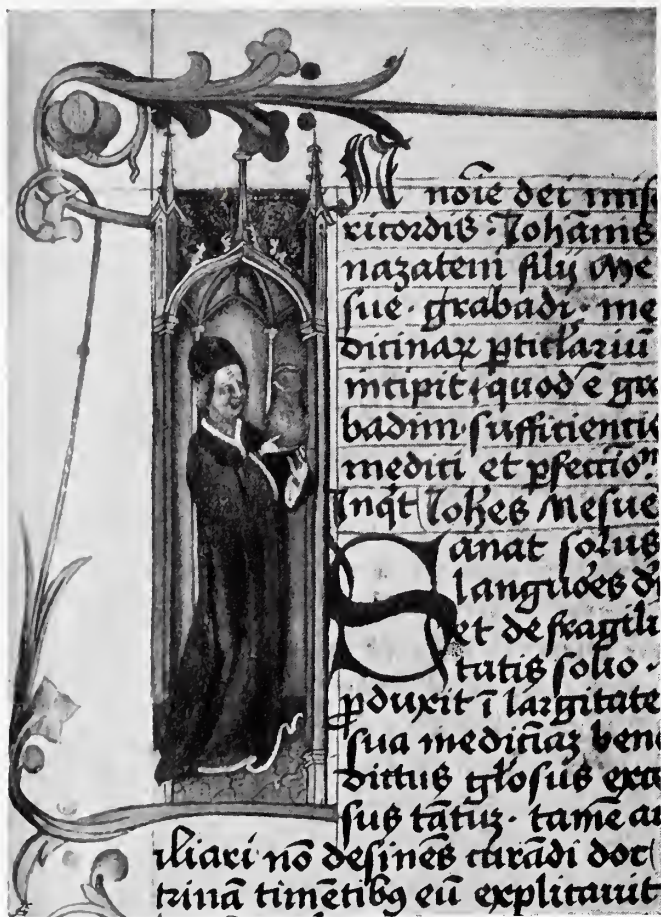 In noīe dei mise
ricordis · Johānis
nazareni filij Me
sue · grabadi · me
dicinaꝝ ꝑticlariū
incipit · quod ē gra
badin · sufficientie
medici et pfectio
Inqt Johēs Mesue
Sanat solus
languōes
et de fragili
tatis solio ·
ꝓduxit ī largitate
sua mediciaꝫ bene
dictus glosus exce
sus tātuꝫ · tamē au
iliari nō desinēs curādi doc
trinā timētibꝯ eū explicauit